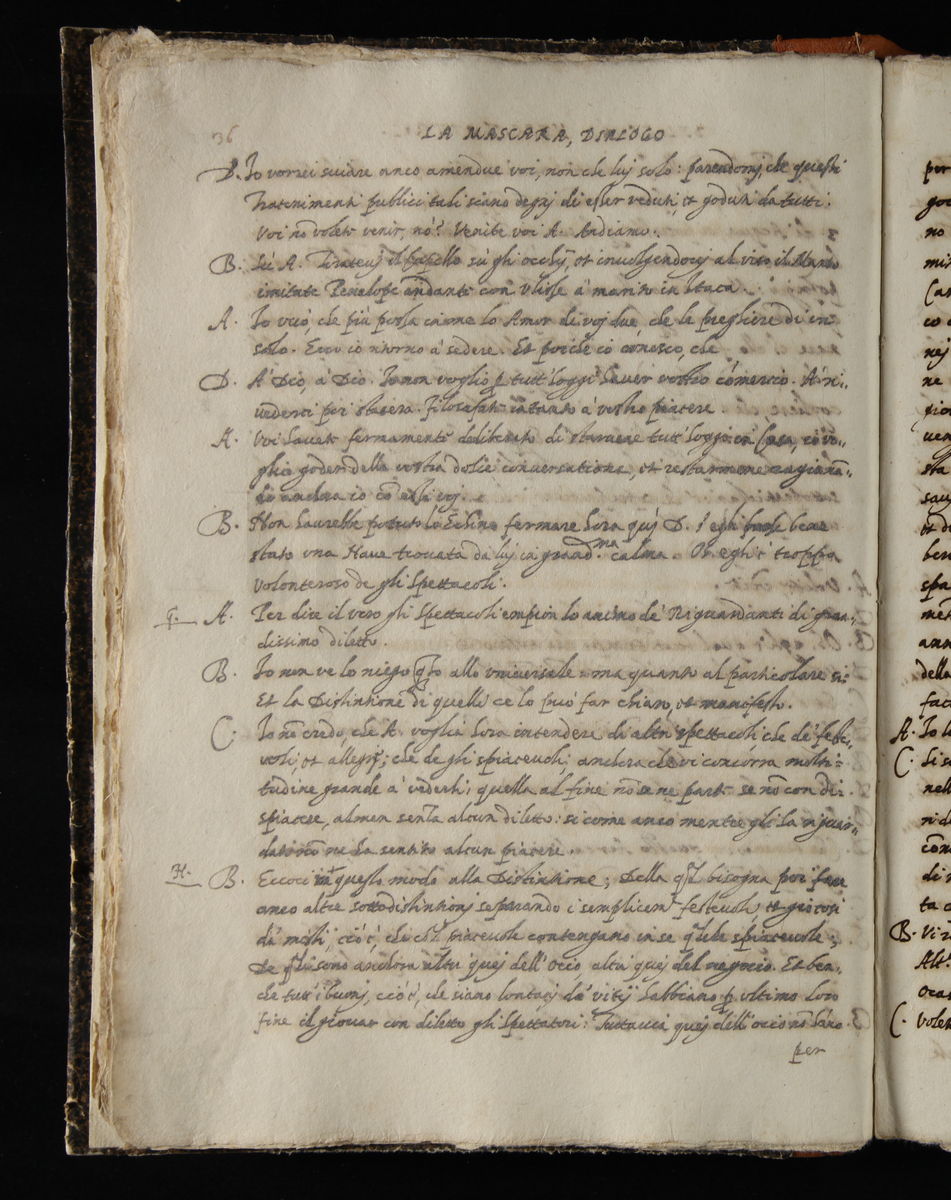 36
LA MASCARA, DIALOGO
D. Io vorrei suiare anco amendue voi, non che lui solo: parendomi, che questi
Tratenimenti publici tali siano degnj di esser veduti, et goduti da tutti.
Voi nō volete venir, nò? Venite voi A. Andiamo.
B. Sù A. Tirateuj il Capello sù gli occhij, et inuolgendoui al viso il Manto
imitate Penelope andante con Vlisse à marito in Itaca.
A. Io veio, che più puola in me lo Amor di voj due, che le preghiere di un
solo. Ecco io ritorno à sedere. Et poiche io conosco, che
D. A' Dio, à Dio. Io non voglio ꝑ tutt'hoggi hauer vostro cōmercio. A' ri-
uederci poi stasera. Filosofate intanto à vostro piacere.
A. Voi hauete fermamente deliberato di staruene tutt'hoggi in Casa, et io vo-
glio goder della vostra dolce conuersatione, et restarmene ragionā-
do anchora io cō esso voj.
B. Non haurebbe potuto lo Echino fermare hora quj D. s'egli fusse bene
stato vna Naue trouata da luj in grand.ma calma. Or egli è troppo
volonteroso de gli Spettacoli.
G. A. Per dire il vero gli Spettacoli empion lo animo de' Riguardanti di gran-
dissimo diletto.
B. Io non ve lo niego q̄to allo vniuersale: ma quanto al particolare sì:
Et la Distintione di quelli ce lo può far chiaro, et manifesto.
C. Io nō credo, che A. voglia hora intendere di altri spettacoli, che de' feste-
uoli, et allegrj; che de gli spiaceuoli, anchora che vi concorra molti-
tudine grande à vederli, quella al fine nō se ne parte se nō con di-
spiacere, almen senza alcun diletto: si come anco mentre gli ha riguar-
dati nō ne ha sentito alcun piacere.
H. B. Eccoci in questo modo alla Distintione; Della q̄l bisogna poi fare
anco altre sottodistintionj separando i semplicemte festeuoli, et giocosi
da' misti, ciò è, che col piaceuole contengano in se q̄lche spiaceuole;
De q̄li sono anchora altri quej dell'Ocio, altri quej del negocio. Et ben-
che tutt'i buonj, ciò è, che siano lontanj da' vitij habbiano ꝑ vltimo loro
fine il giouar con diletto gli Spettatori: Tuttauia quej dell'ocio nō hāno
per